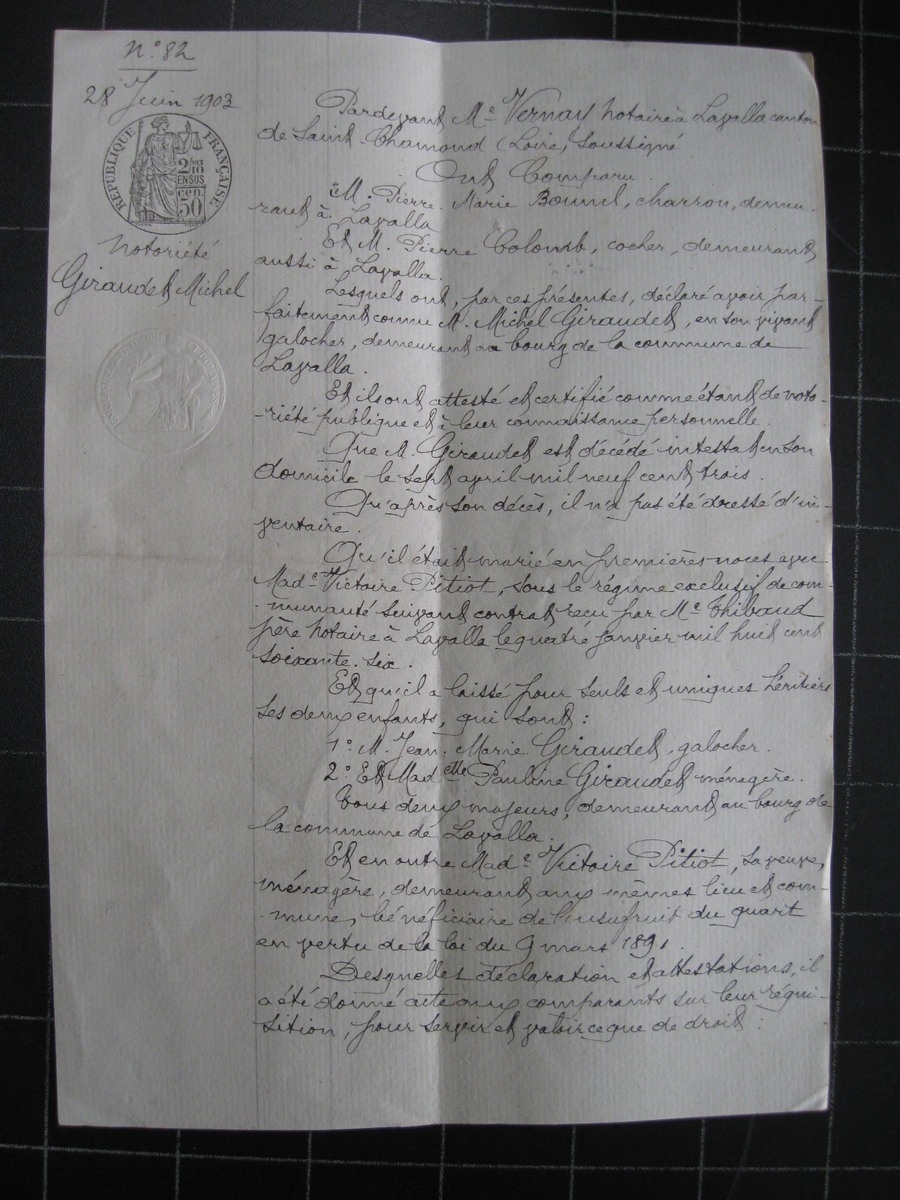 N° 82
28 Juin 1903
RÉPUBLIQUE FRANÇAISE
2/10
EN SUS
50
cen.
Notoriété
Giraudet Michel
Pardevant Me Vernay notaire à Lavalla canton
de Saint-Chamond (Loire) soussigné
Ont Comparu.
M. Pierre-Marie Bonnel, charron, demeu-
rant à Lavalla
Et M. Pierre Colomb, cocher, demeurant
aussi à Lavalla.
Lesquels ont, par ces présentes, déclaré avoir par-
faitement connu M. Michel Giraudet, en son vivant
galocher, demeurant au bourg de la commune de
Lavalla.
Et ils ont attesté et certifié comme étant de noto-
-riété publique et à leur connaissance personnelle.
Que M. Giraudet est décédé intestat en son
domicile le sept avril mil neuf cent trois.
Qu'après son décès, il n'a pas été dressé d'in-
ventaire.
Qu'il était marié en premières noces avec
Made Victoire Pitiot, sous le régime exclusif de com-
-munauté suivant contrat reçu par Me Thibaud
père notaire à Lavalla le quatre janvier mil huit cent
soixante-six.
Et qu'il a laissé pour seuls et uniques héritiers
ses deux enfants, qui sont :
1° M. Jean-Marie Giraudet, galocher.
2° Et Madelle Pauline Giraudet ménagère.
Tous deux majeurs, demeurant au bourg de
la commune de Lavalla.
Et en outre Made Victoire Pitiot, sa veuve,
ménagère, demeurant aux mêmes lieu et com-
-mune, bénéficiaire de l'usufruit du quart
en vertu de la loi du 9 mars 1891.
Desquelles déclaration et attestations, il
a été donné acte aux comparants sur leur réqui-
sition, pour servir et valoir ce que de droit :